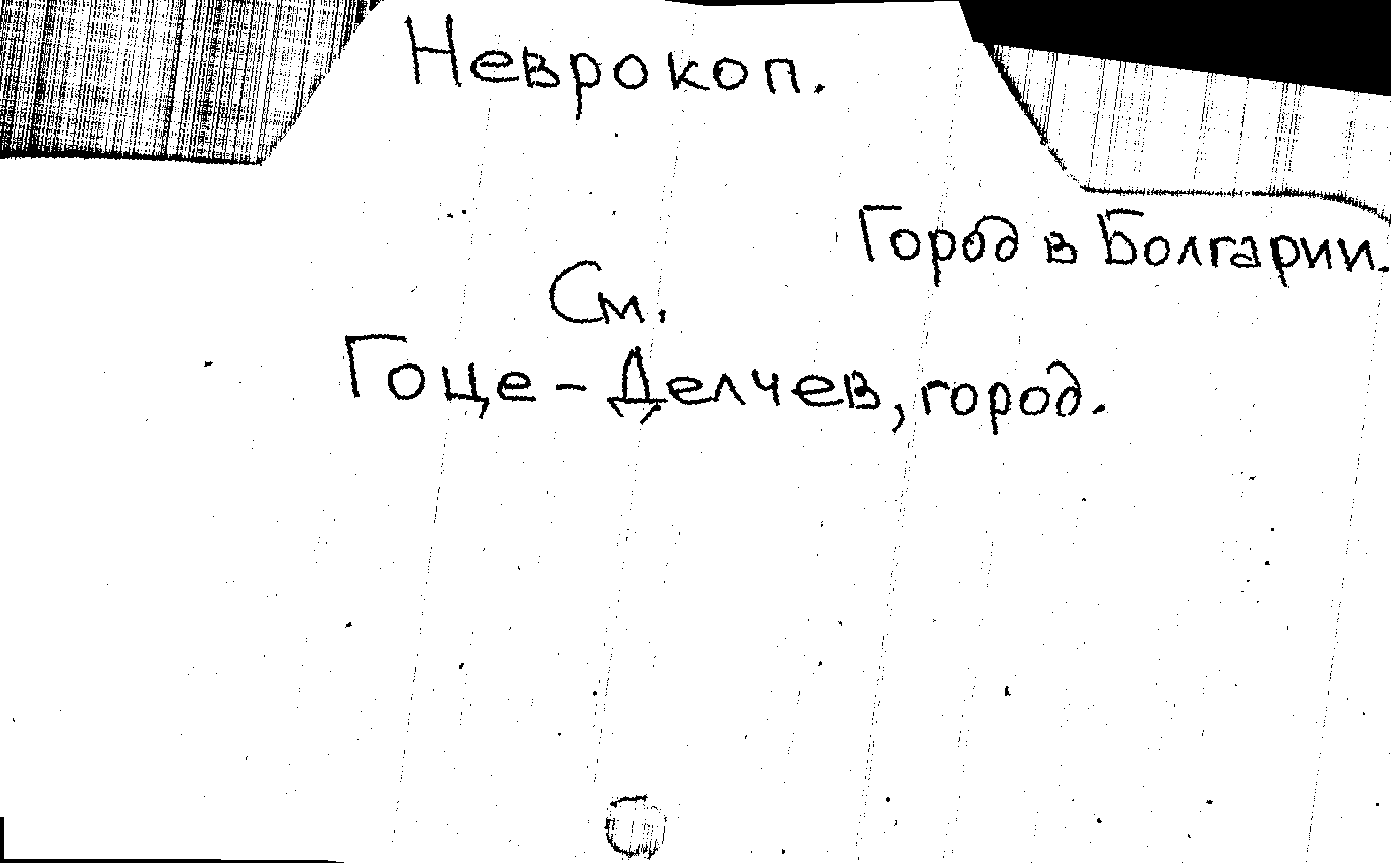 Неврокоп.
Город в Болгарии.
См.
Гоце-Делчев, город.